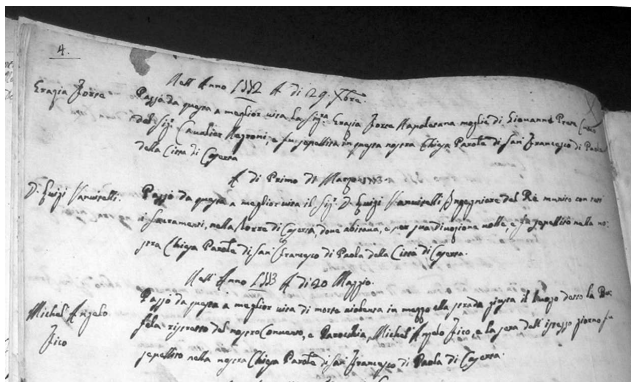 4.
Nell'Anno 1772 A di 29 Xbre
Grazia Forte
Passò da questa a meglior vita la Sig.ra Grazia Forte Napoletana moglie di Giovanne
del Sig. Cavalier Negroni, e fu sepellita in questa nostra Chiesa Parole di San Francesco di Paola
della Città di Caserta
A di Primo de Marzo 1773
D. Luigi Vanvitelli.
Passò da questa a meglior vita il Sig. D. Luigi Vanvitelli Ingegniere del Rè munito con tutti
i sacramenti, nella Torre di Caserta, dove abitava, e per sua divozione volle, e fu sepellito nella no-
stra Chiesa Parole di San Francesco di Paola della Città di Caserta.
Nell'Anno 1773 A di 20 Maggio.
Michel Angelo
Fico
Passò da questa a meglior vita di morte violenta in mezzo alla strada giusta il luogo detto la
rispetto del nostro Convento, e Parocchia, Michel Angelo Fico, e la sera dell'istesso giorno fu
sepellito nella nostra Chiesa Parole di San Francesco di Paola di Caserta.